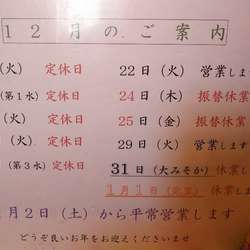 12月のご案内
(火) 定休日 22日(火) 営業しま
(第1水) 定休日 24日(木) 振替休業
(火) 定休日 25日(金) 振替休業
(火) 定休日 29日(火) 営業しま
(第3水) 定休日 31日(大みそか) 休業し
1月1日 休業し
月2日(土)から平常営業します
どうぞ良いお年をお迎えくださいませ